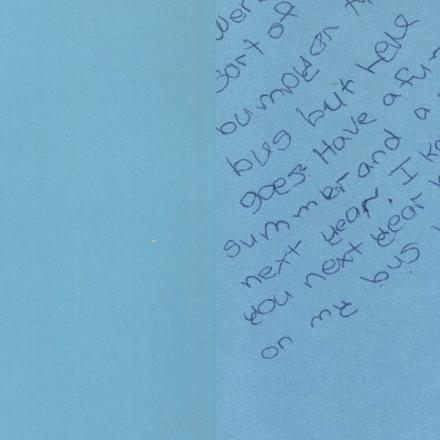 sort of
bumped on
bus but here
goes: Have a fun
summer and a
next year. I
you next year
on my bus